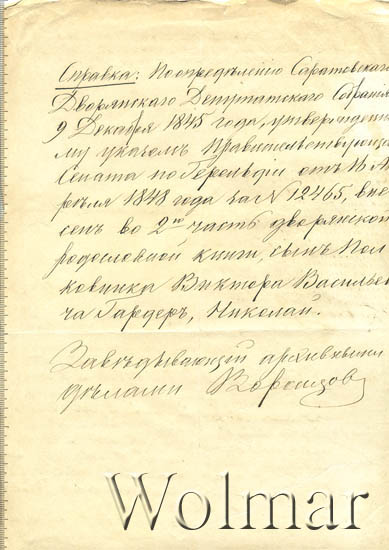 Справка: По опредѣленію Саратовскаго
Дворянскаго Депутатскаго Собранія
9 Декабря 1845 года, утвержденно
му указомъ Правительствующаго
Сената по Герольдіи отъ 16 Ап
рѣля 1848 года за № 12465, вне
сенъ во 2ю часть дворянской
родословной книги, сынъ Пол
ковника Виктора Василье
ча Гардеръ, Николай.
Завѣдывающій архивными
дѣлами
Wolmar